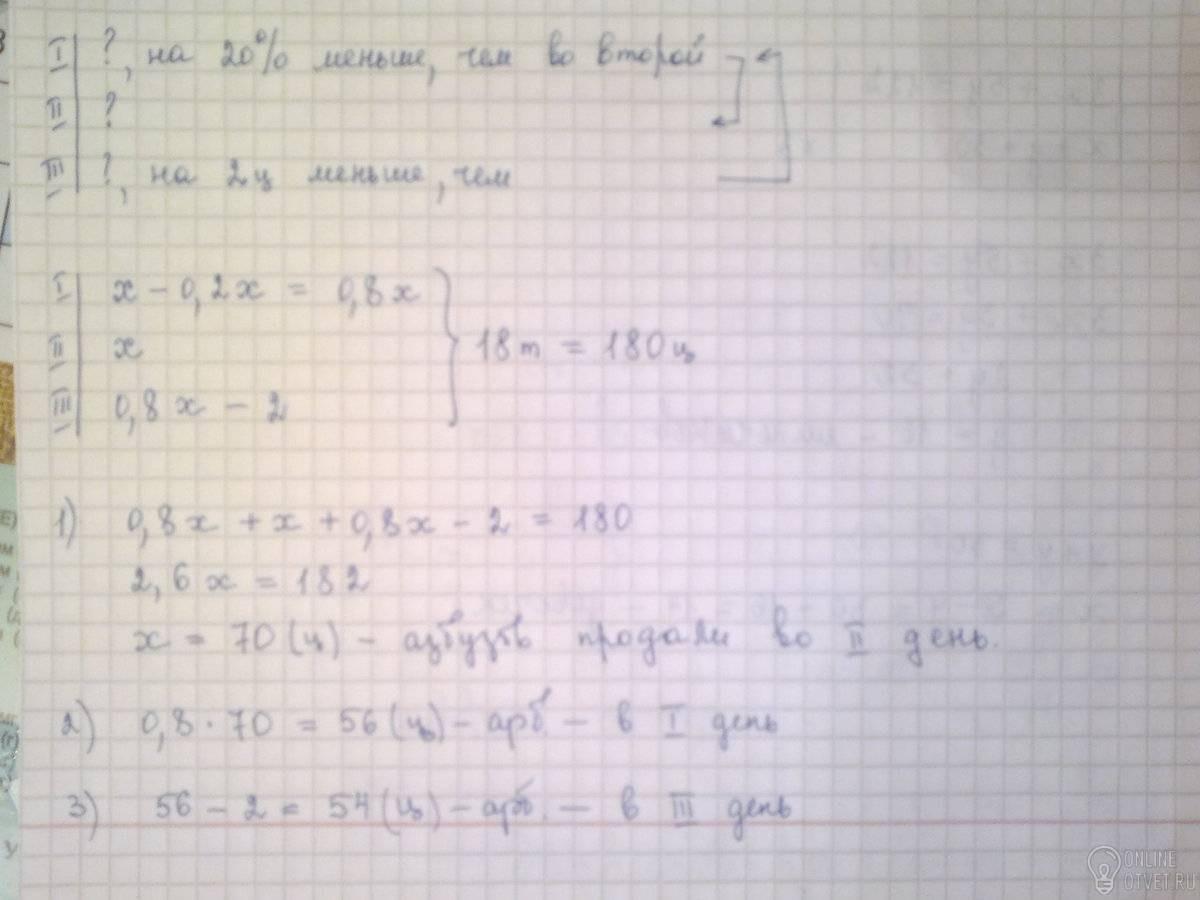 I ?, на 20% меньше, чем во второй
II ?
III ?, на 2ц меньше, чем
I x - 0,2x = 0,8x
II x
III 0,8x - 2
18т = 180ц
1) 0,8x + x + 0,8x - 2 = 180
2,6x = 182
x = 70 (ц) - азбузов продали во II день.
2) 0,8 · 70 = 56 (ц) - арб. - в I день
3) 56 - 2 = 54 (ц) - арб. - в III день
ONLINE
OTVET.RU